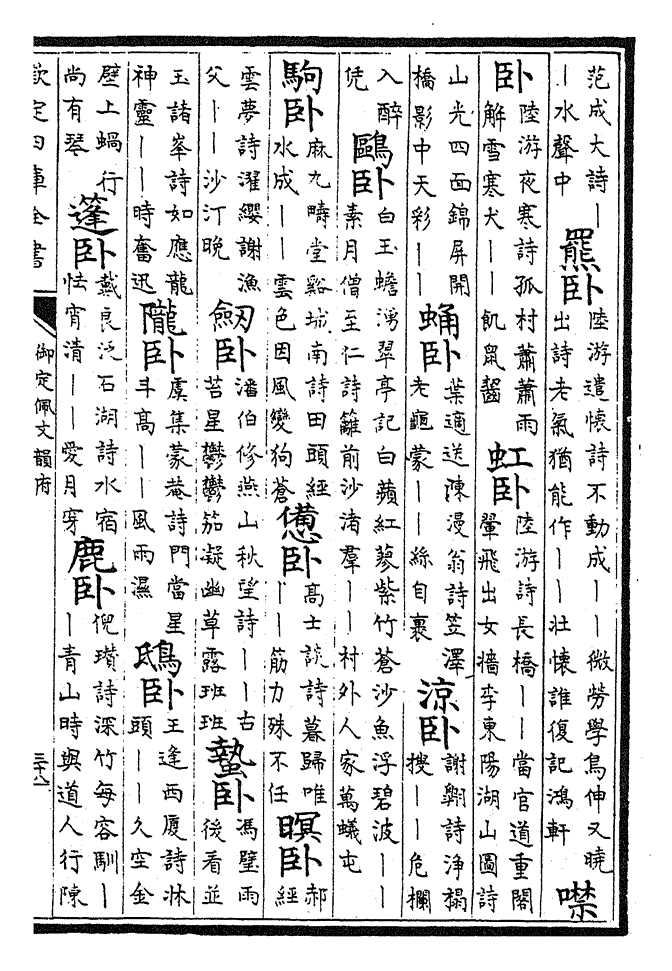 范成大詩｜｜水聲中 羆卧 陸游遣懷詩不動成｜｜微勞學鳥伸又曉出詩老氣猶能作｜｜壯懷誰復記鴻軒 噤
卧 陸游夜寒詩孤村蕭蕭雨解雪寒犬｜｜飢鼠齧 虹卧 陸游詩長橋｜｜當官道重閣翬飛出女牆李東陽湖山圖詩
山光四面錦屏開橋影中天彩｜｜ 蛹卧 葉適送陳漫翁詩笠澤老龜蒙｜｜絲自裹 涼卧 謝翺詩淨榻搜｜｜危欄
入醉凭 鷗卧 白玉蟾湧翠亭記白蘋紅蓼紫竹蒼沙魚浮碧波｜｜素月僧至仁詩籬前沙渚羣｜｜村外人家萬蟻屯
駒卧 麻九疇堂谿城南詩田頭經水成｜｜雲色因風變狗蒼 憊卧 高士談詩暮歸唯｜｜筋力殊不任 暝卧 郝經
雲夢詩濯纓謝漁父｜｜沙汀晚 劒卧 潘伯修燕山秋望詩｜｜古苔星鬱鬱笳凝幽草露班班 蟄卧 馮璧雨後看並
玉諸峯詩如應龍神靈｜｜時奮迅 隴卧 虞集蒙菴詩門當星斗高｜｜風雨濕 鴟卧 王逢西厦詩牀頭｜｜久空金
壁上蝸行尚有琴 篷卧 戴良泛石湖詩水宿怯宵清｜｜愛月穿 鹿卧 倪瓚詩深竹每容馴｜｜青山時與道人行陳
欽定四庫全書 御定佩文韻府 三十八